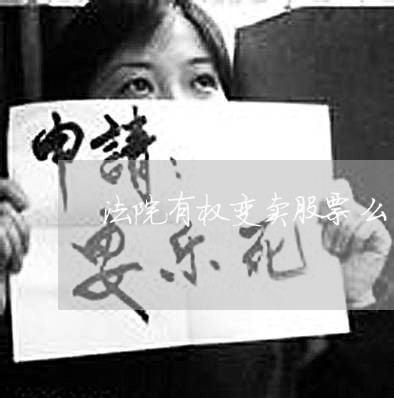 申請：
法院有权变卖股票么
安乐死